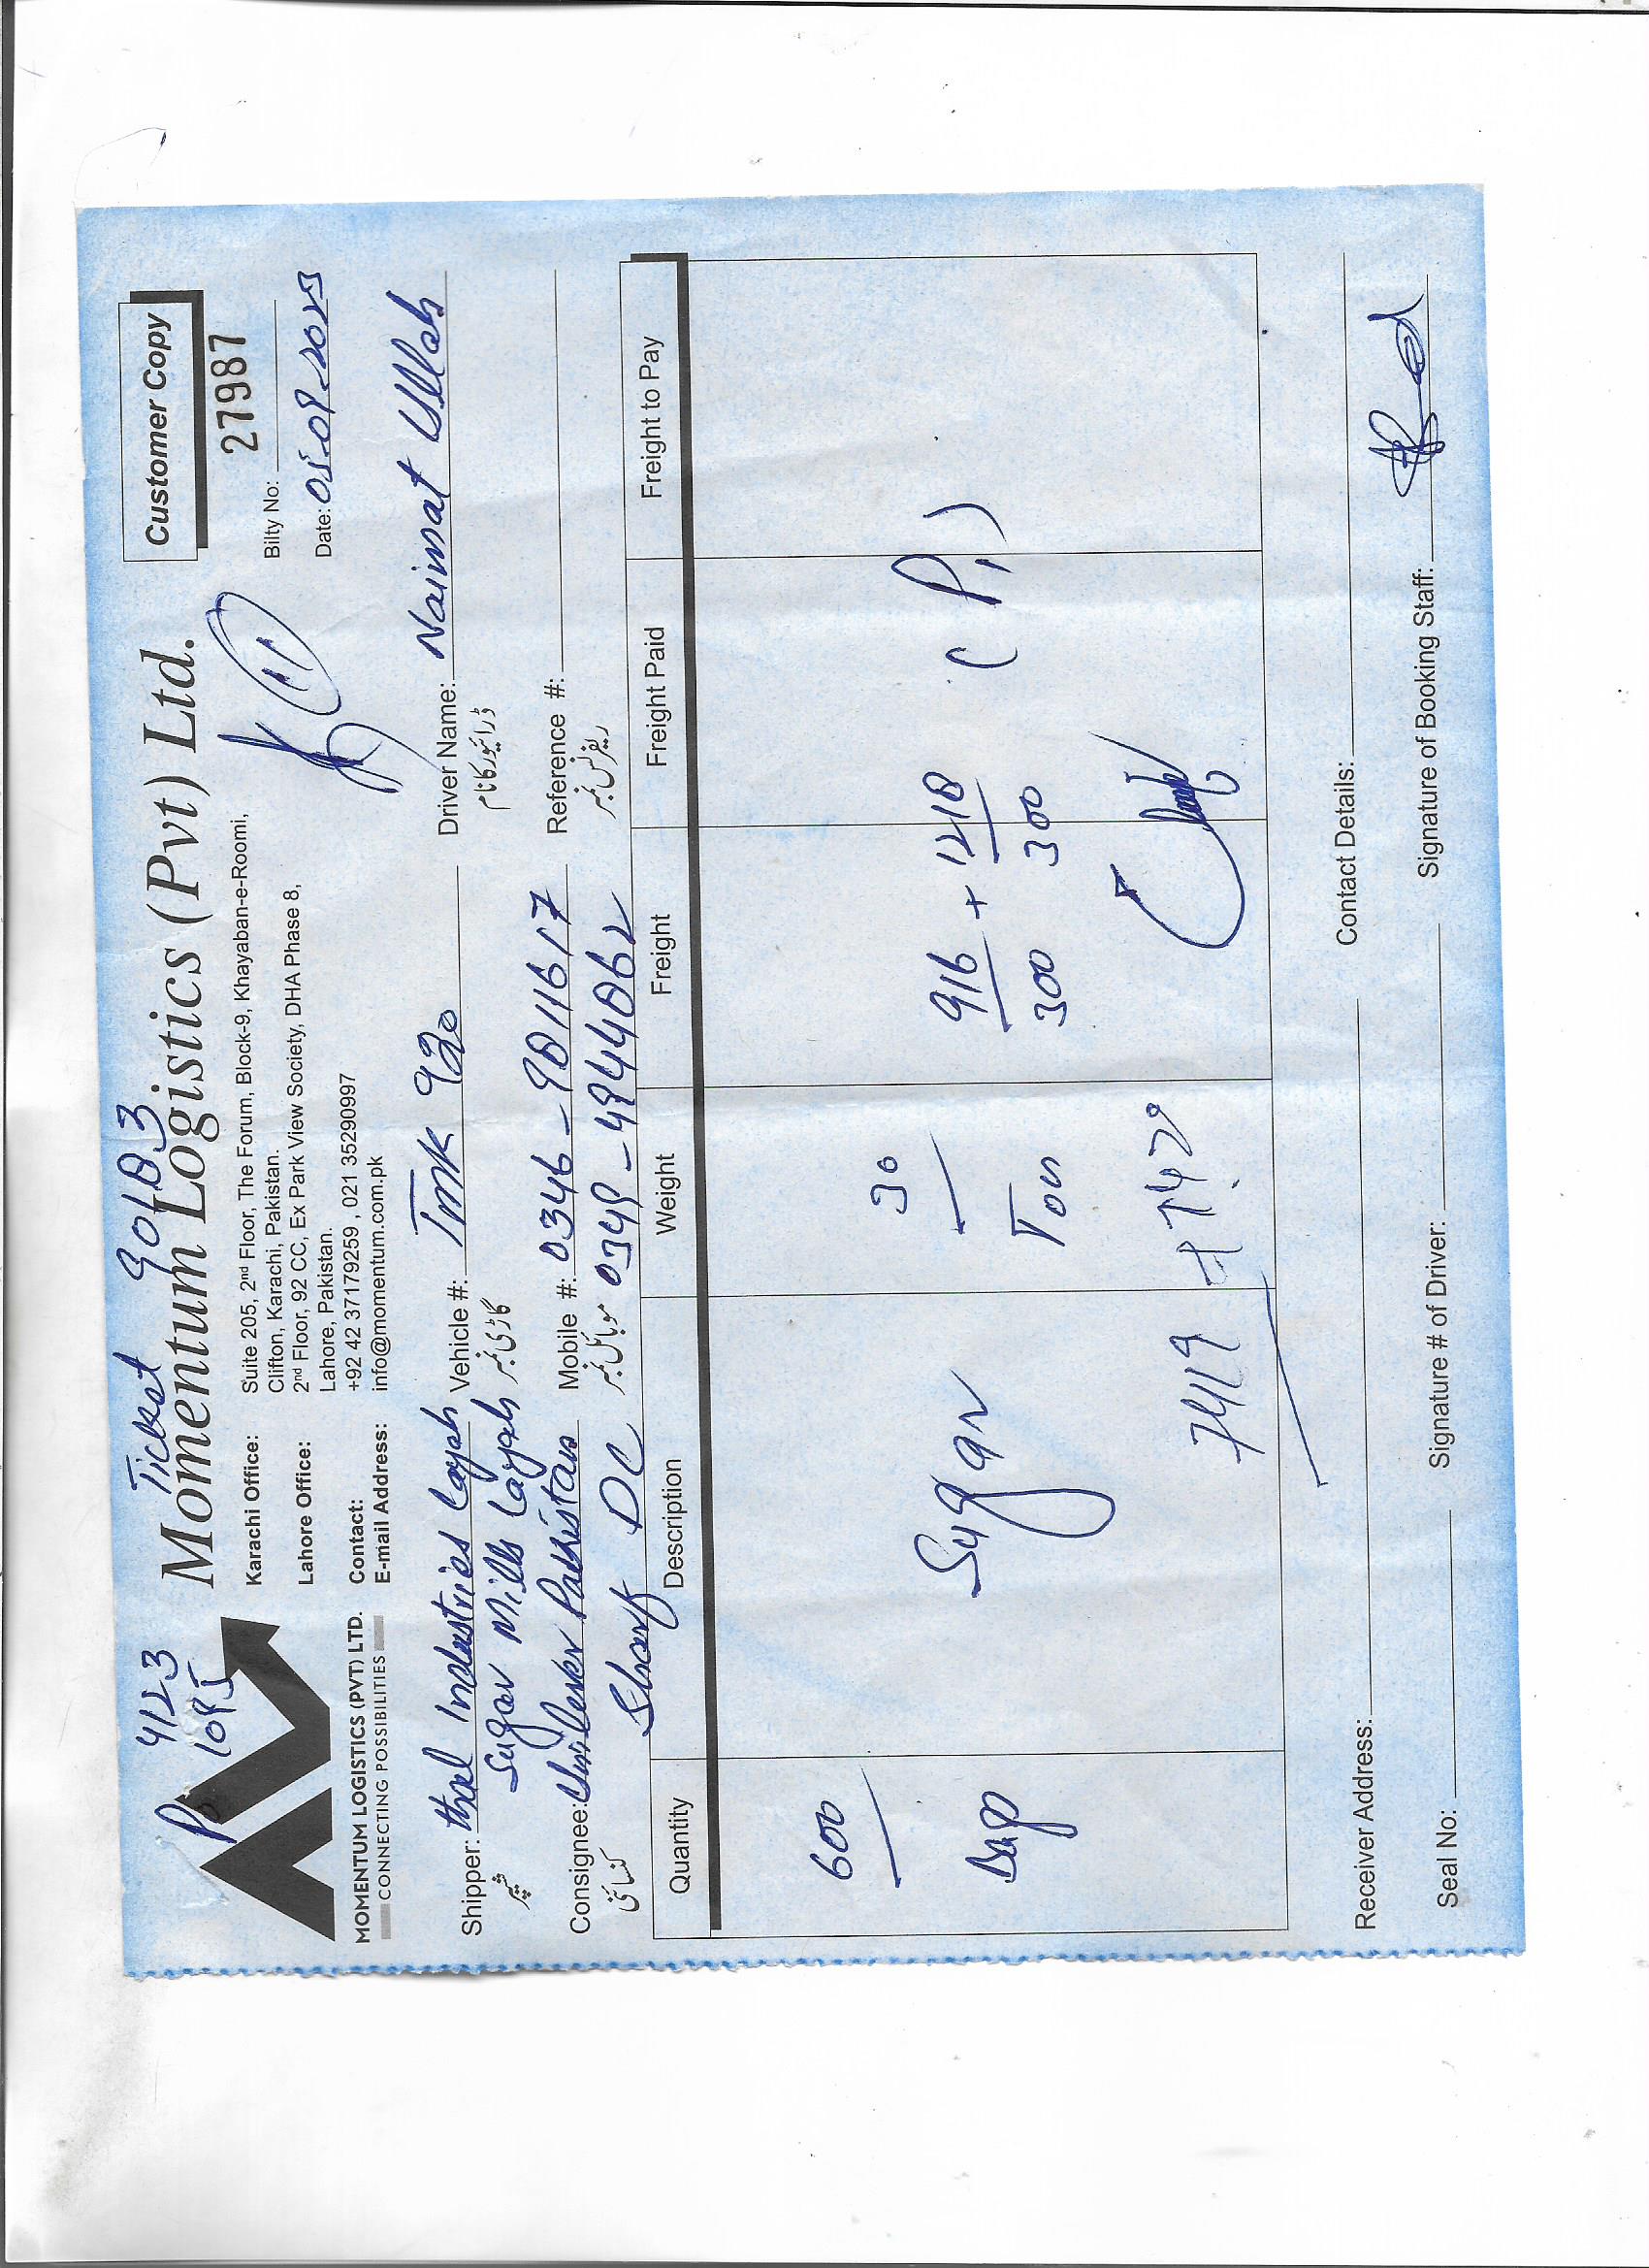 4123
Po 1095
Ticket 90183
Customer Copy
27987
Momentum Logistics (Pvt) Ltd.
MOMENTUM LOGISTICS (PVT) LTD.
CONNECTING POSSIBILITIES
Karachi Office: Suite 205, 2nd Floor, The Forum, Block-9, Khayaban-e-Roomi,
Clifton, Karachi, Pakistan.
Lahore Office: 2nd Floor, 92 CC, Ex Park View Society, DHA Phase 8,
Lahore, Pakistan.
Contact: +92 42 37179259 , 021 35290997
E-mail Address: info@momentum.com.pk
Bilty No:
Date: 05-09-2023
Shipper: thal Industries Layah
شپر
Sugar Mills Layah
Vehicle #: TMK 920
گاڑی نمبر
Driver Name: Naimat Ullah
ڈرائیور کا نام
Consignee: Unilever Pakistan
کنسائنی
Sharf DC
Mobile #: 0346-9811617
موبائل نمبر 0349-4944862
Reference #:
ریفرنس نمبر
Quantity Description Weight Freight Freight Paid Freight to Pay
600 Bags
Sugar
30 Ton
916 + 1218
300 300
(P1)
7419 + 7420
Receiver Address: Contact Details:
Seal No: Signature # of Driver: Signature of Booking Staff: